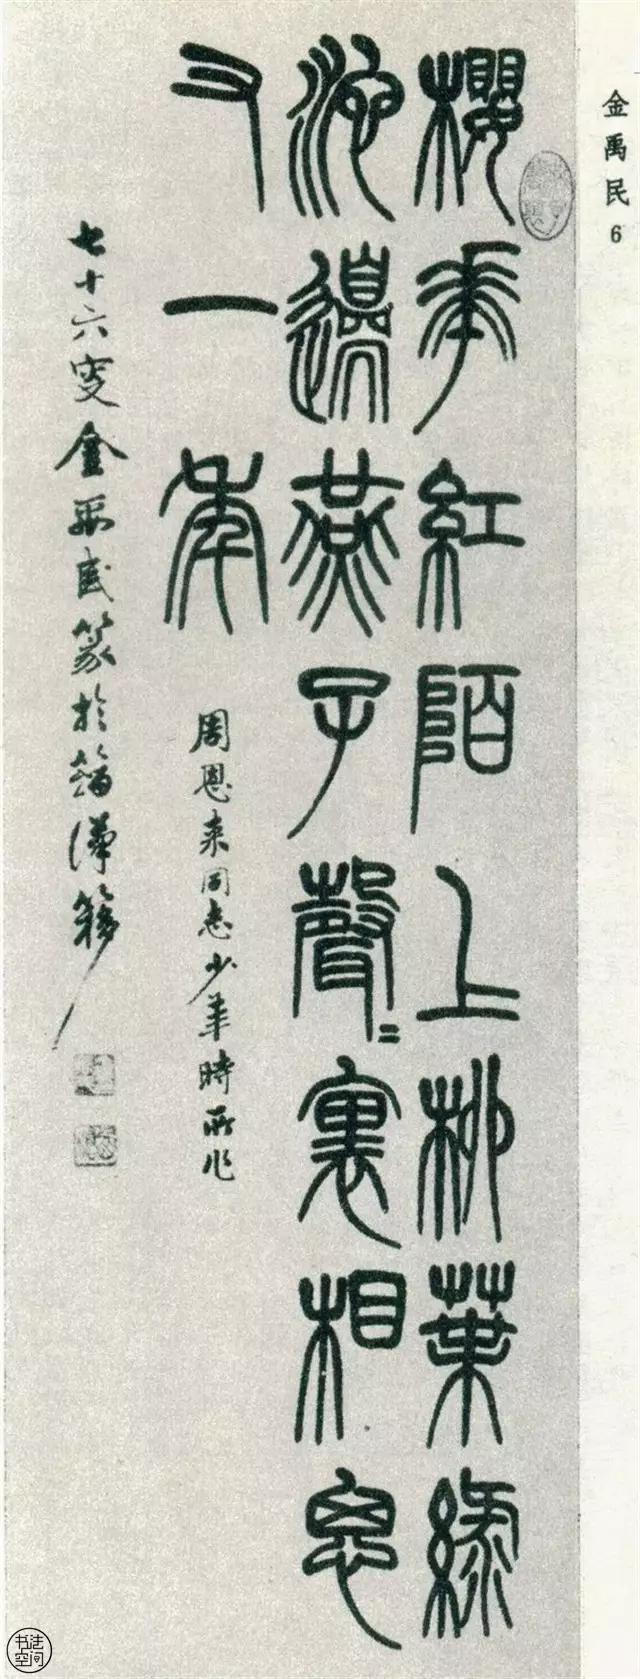 金禹民 6
櫻華紅陌上柳葉綠
池邊燕子聲〻裏相思
又一年
周恩來同志少年時所作
七十六叟金禹民篆於籀漢簃
书法
空间